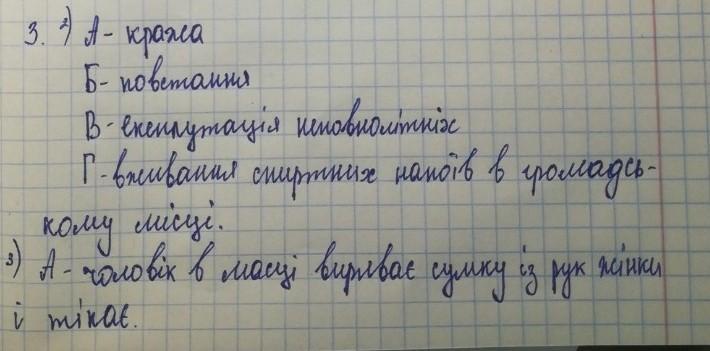 3. 2) А - кража
Б - повстання
В - експлутація неповнолітніх
Г - вживання спиртних напоїв в громадсь-
кому місці.
3) А - чоловік в масці вириває сумку із рук жінки
і тікає.